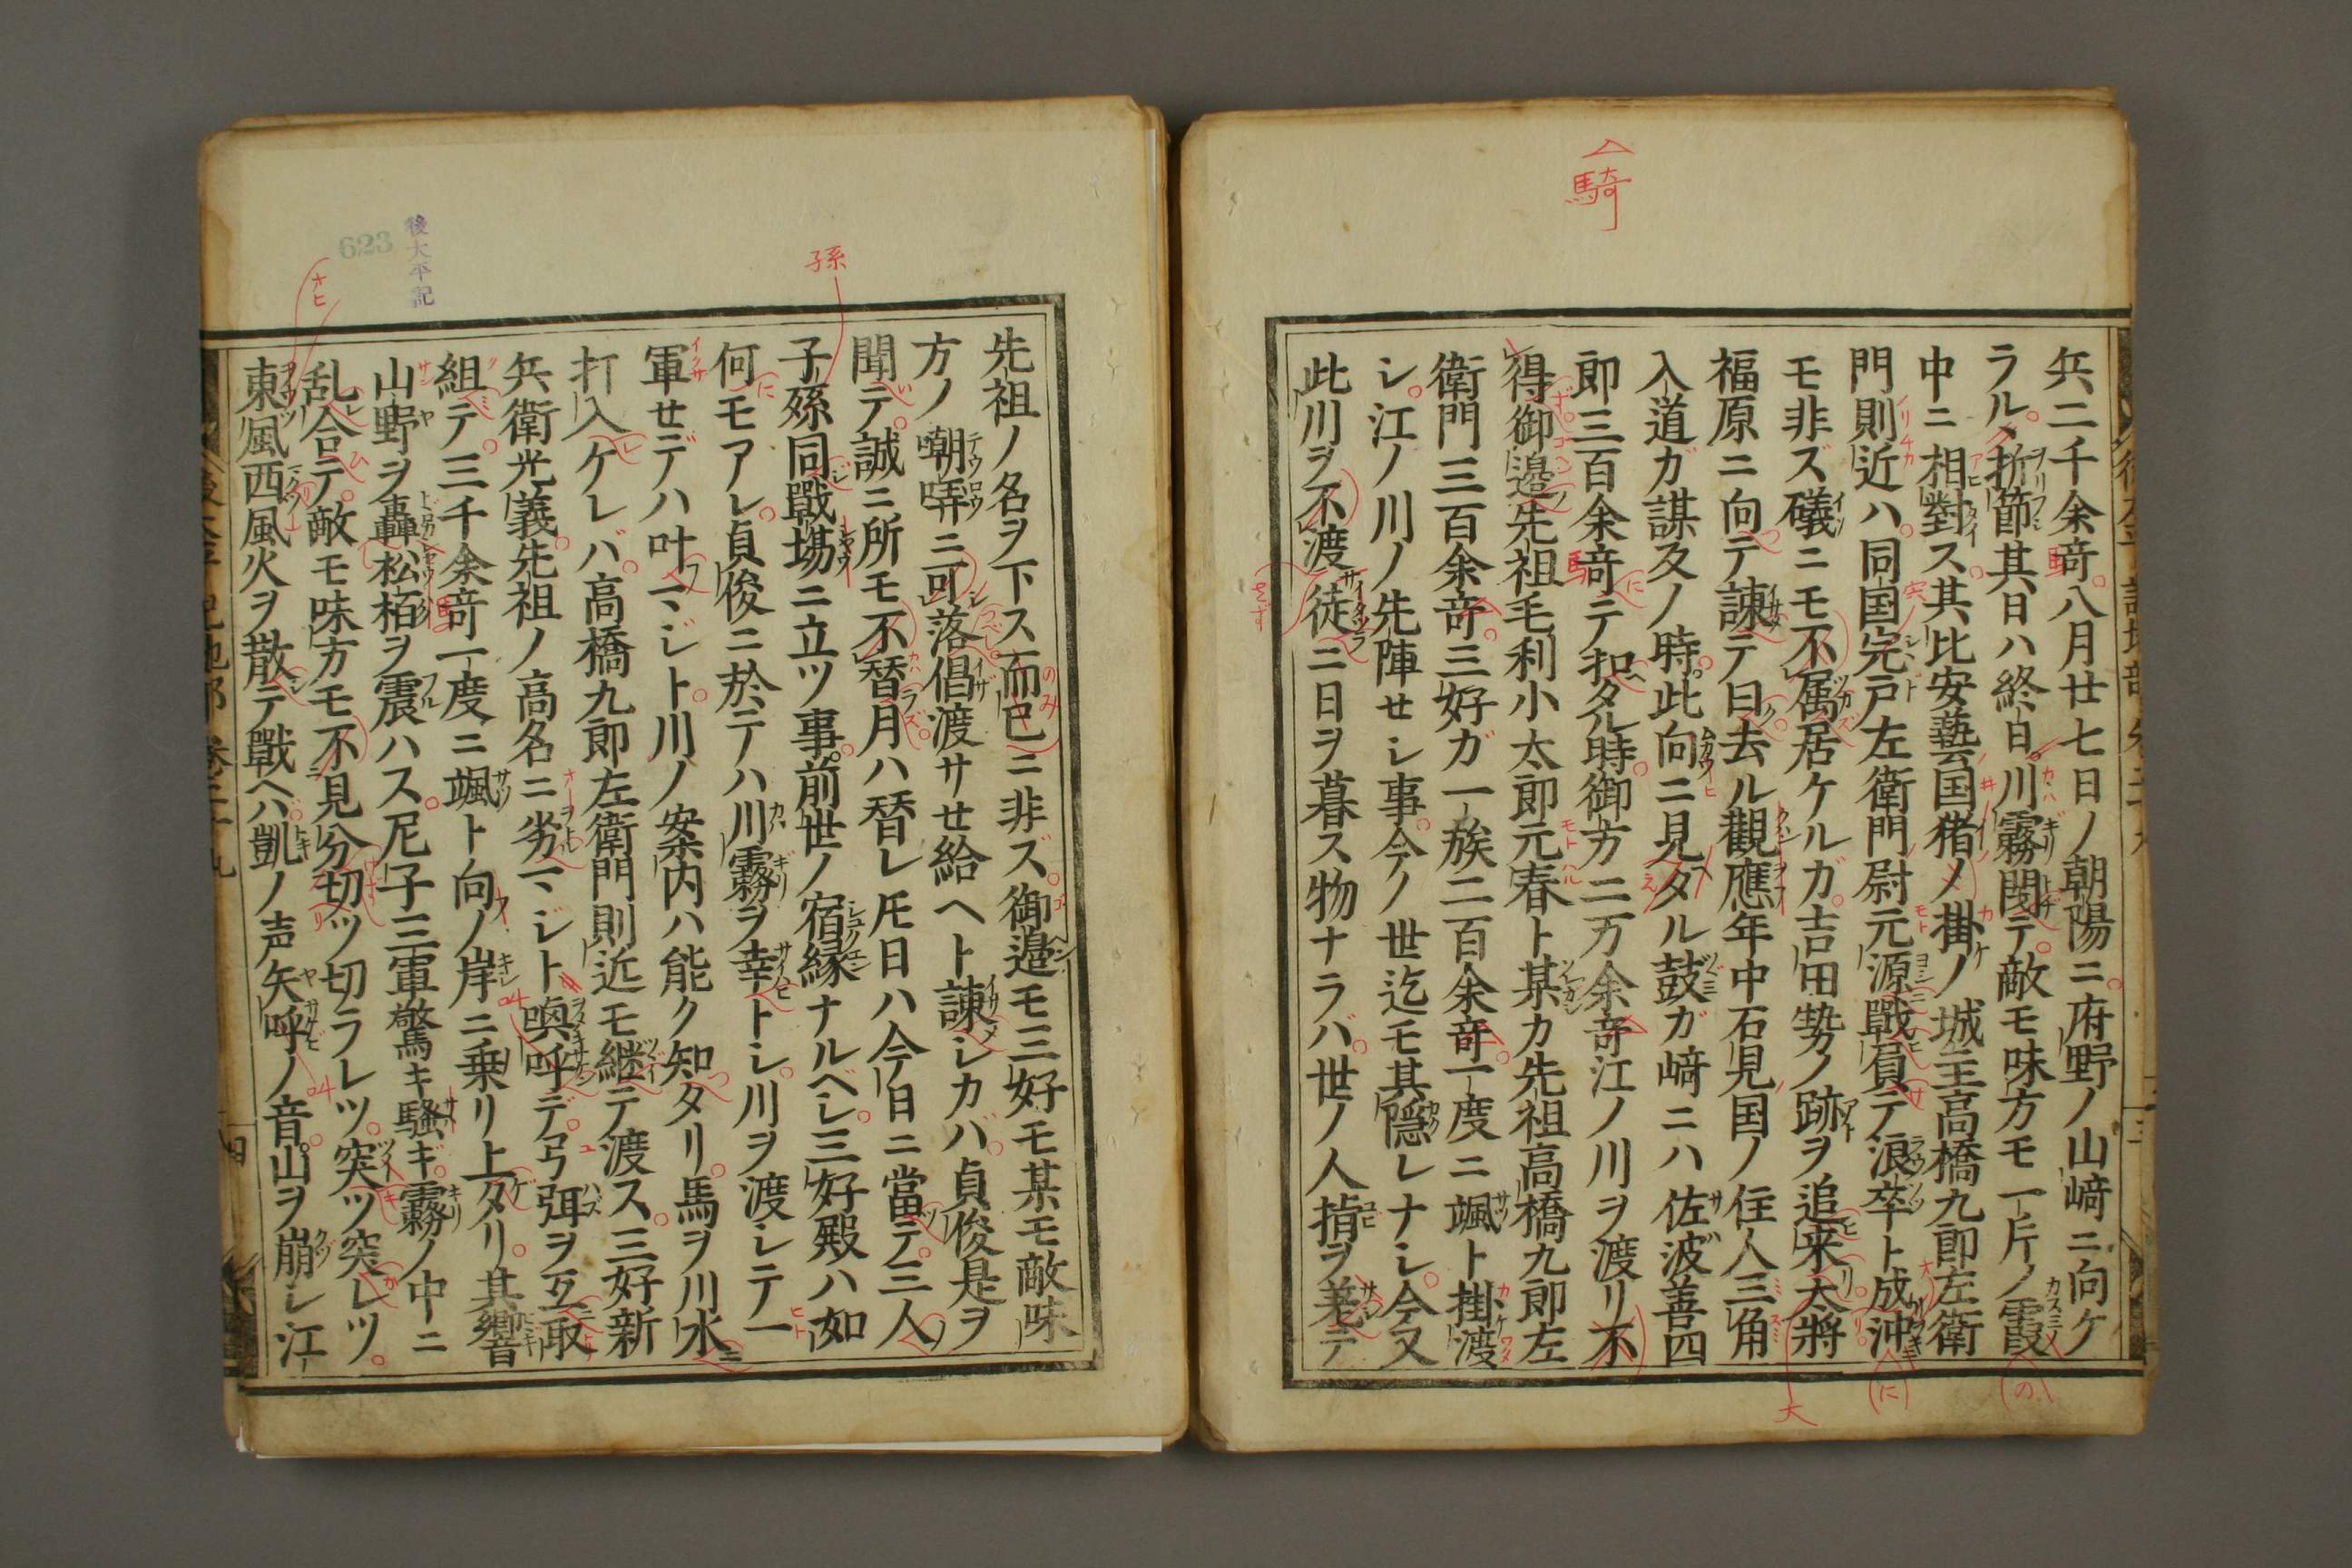 騎
兵二千余竒八月廿七日ノ朝陽ニ府野ノ山﨑ニ向ケ
ラル折節其日ハ終日川霧閉テ敵モ味方モ一斤ノ霞
中ニ相對ス其比安藝国猪ノ掛ノ城主高橋九郎左衛
門則近ハ同国完戸左衛門尉元源戰負テ浪卒ト成沖
モ非ズ礒ニモ不属居ケルガ吉田勢ノ跡ヲ追来大將
福原ニ向テ諌テ曰去ル觀應年中石見国ノ住人三角
入道ガ謀叛ノ時此向ニ見タル鼓ガ﨑ニハ佐波善四
郎三百余竒テ扣タル時御方二万余竒江ノ川ヲ渡リ不
得御邉先祖毛利小太郎元春ト某カ先祖高橋九郎左
衛門三百余竒三好ガ一族二百余竒一度ニ颯ト掛渡
シ江ノ川ノ先陣せシ事今ノ世迄モ其隠レナシ今又
此川ヲ不渡徒ニ日ヲ暮ス物ナラバ世ノ人指ヲ差テ
後太平記
623
孫
先祖ノ名ヲ下ス而已ニ非ズ御邉モ三好モ某モ敵味
方ノ嘲哢ニ可落倡渡サせ給ヘト諌シカバ貞俊是ヲ
聞テ誠ニ所モ不替月ハ替レ𪜈日ハ今日ニ當テ三人ノ
子孫同戰塲ニ立ツ事前世ノ宿縁ナルベシ三好殿ハ如
何モアレ貞俊ニ於テハ川霧ヲ幸トシ川ヲ渡シテ一
軍せデハ叶マジト川ノ案内ハ能ク知タリ馬ヲ川水
打入ケレバ高橋九郎左衛門則近モ継テ渡ス三好新
兵衛光義先祖ノ高名ニ劣マジト喚呼デ弓弭ヲ互取
組テ三千余竒一度ニ颯ト向ノ岸ニ乗リ上タリ其響
山野ヲ轟松栢ヲ震ハス尼子三軍驚キ騒ギ霧ノ中ニ
乱合テ敵モ味方モ不見分切ツ切ラレツ突ツ突レツ
東風西風火ヲ散テ戰ヘハ凱ノ声矢呼ノ音山ヲ崩シ江